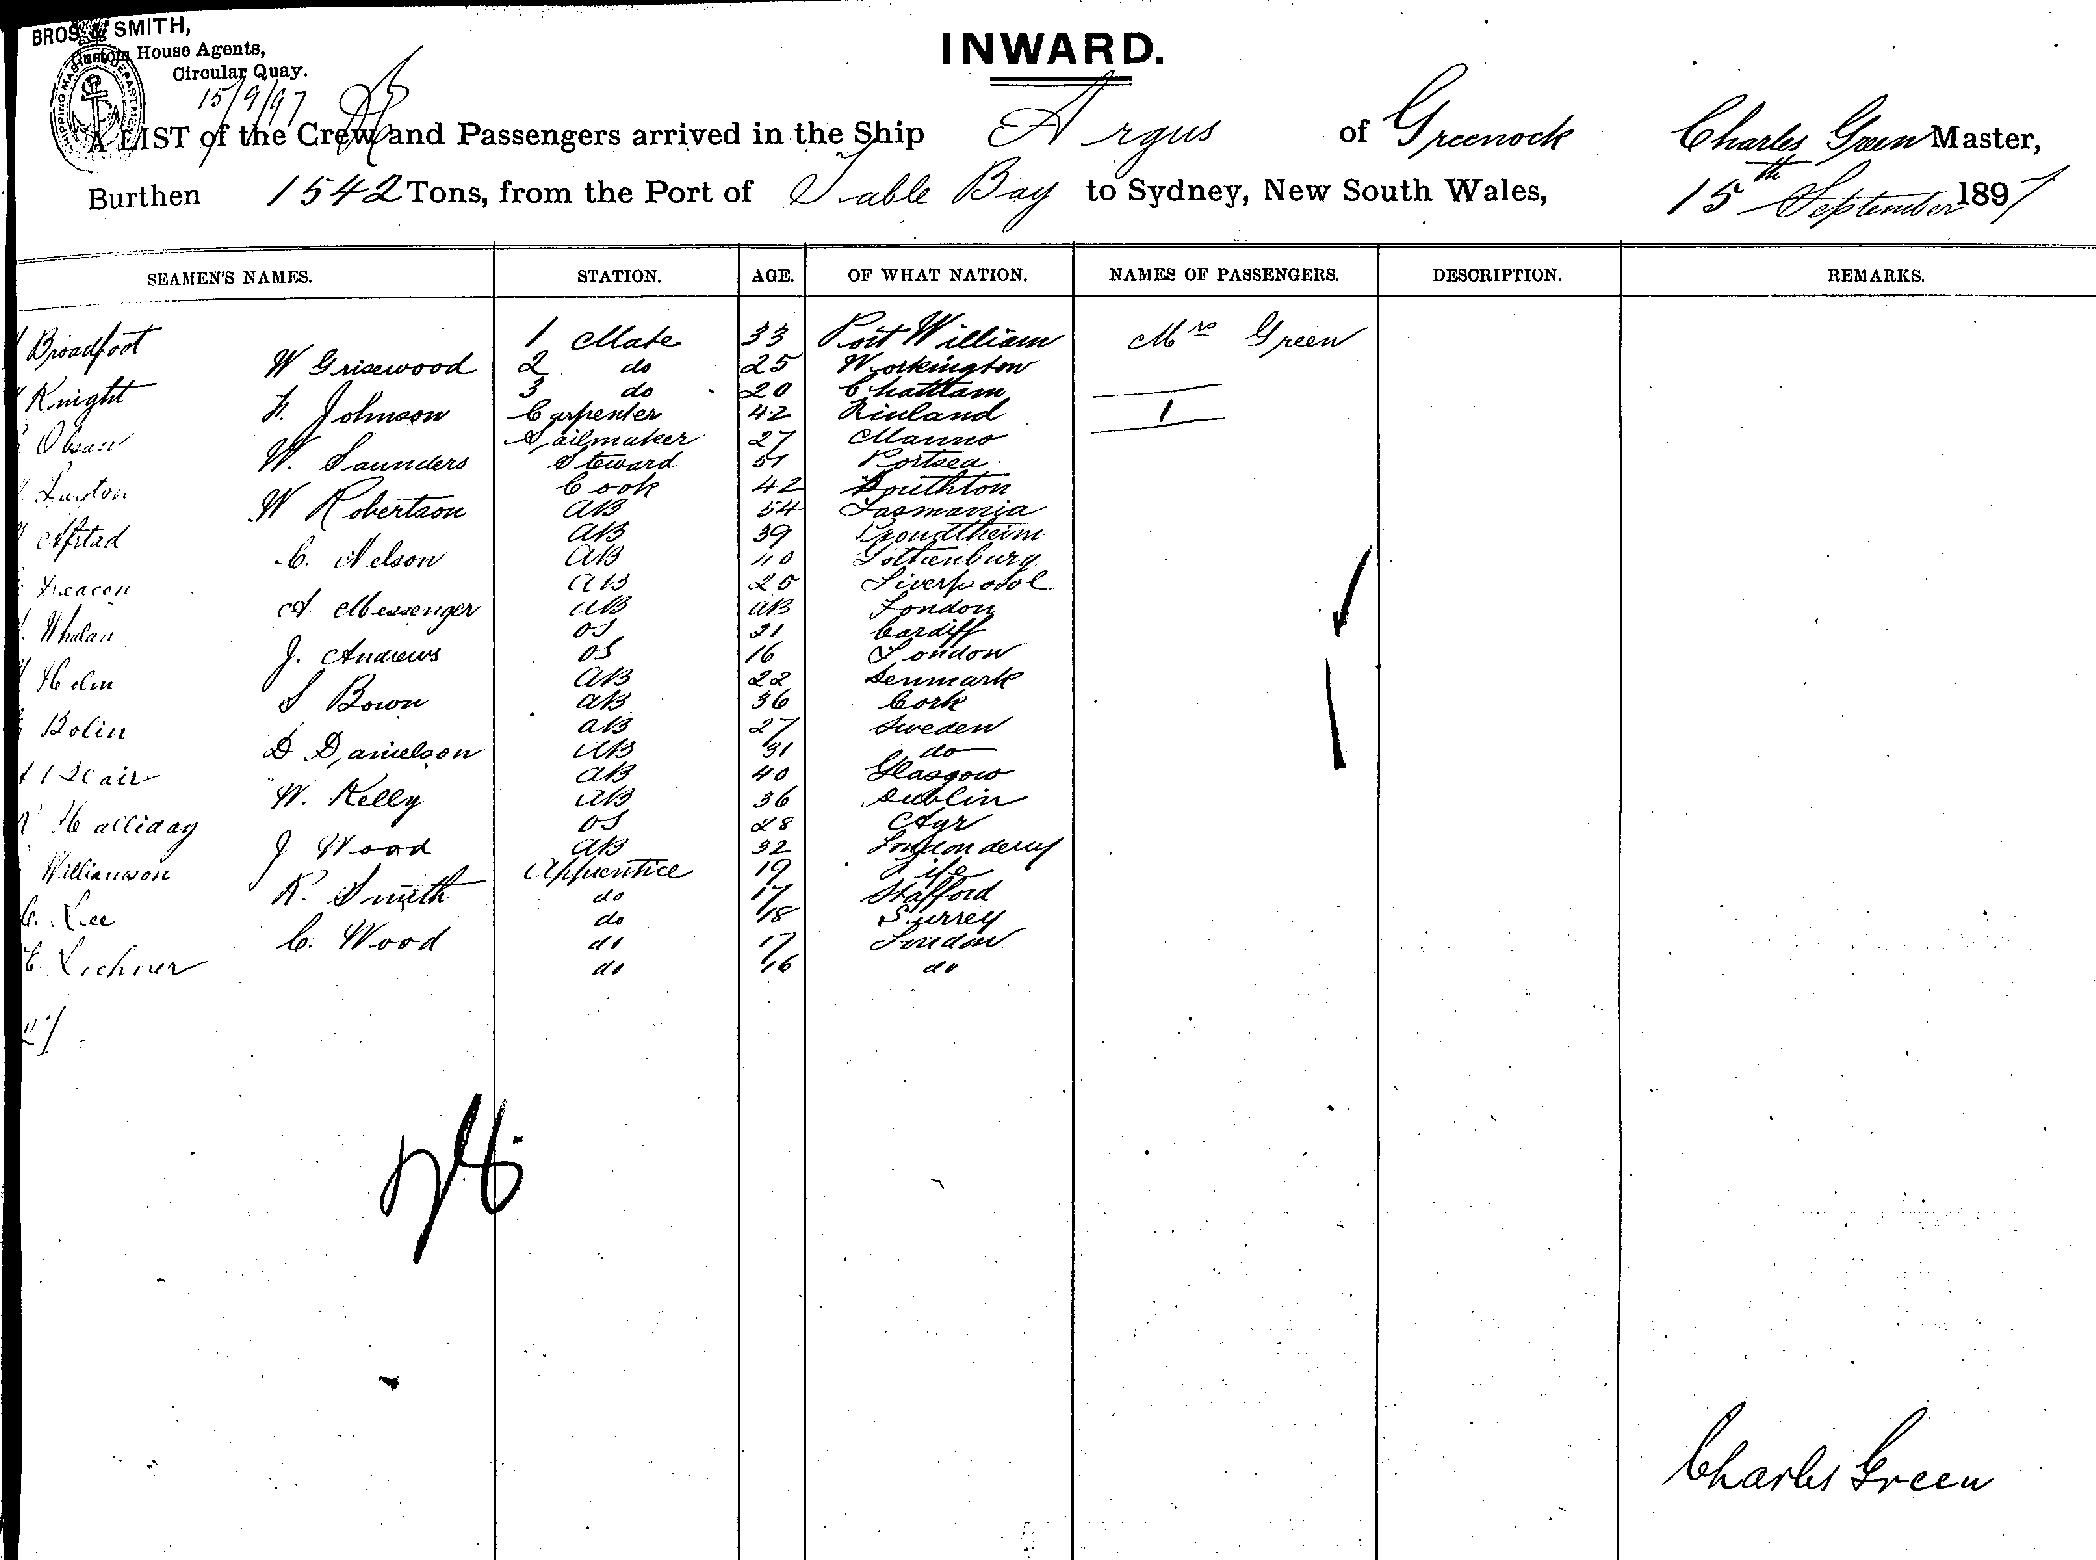 BROS & SMITH,
House Agents,
Circular Quay.
15/9/97
INWARD.
A LIST of the Crew and Passengers arrived in the Ship Argus of Greenock Charles Green Master,
Burthen 1542 Tons, from the Port of Table Bay to Sydney, New South Wales, 15th September 1897
SEAMEN'S NAMES. STATION. AGE. OF WHAT NATION. NAMES OF PASSENGERS. DESCRIPTION. REMARKS.
Broadfoot 1 Mate 33 Port William Mrs Green
W Grisewood 2 do 25 Workington
Knight 3 do 20 Chattam
Johnson Carpenter 42 Finland 1
Olsan Sailmaker 27 Manno
W. Saunders Steward 51 Portsea
Luxton Cook 42 Southton
W Robertson AB 54 Tasmania
Aftad AB 39 Trondtheim
C. Nelson AB 40 Gothenburg
Deacon AB 20 Liverpool
A Messenger AB AB London
Whalan OS 21 Cardiff
J. Andrews OS 16 London
Holm AB 22 Denmark
S Bown AB 36 Cork
Bolin AB 27 Sweden
D Danielson AB 31 do
Blair AB 40 Glasgow
W. Kelly AB 36 Dublin
Halliday OS 28 Ayr
J Wood AB 32 Londonderry
Williamson Apprentice 19 Fife
R. Smith do 17 Stafford
C. Lee do 18 Surrey
C. Wood do 17 London
E Lechner do 16 do
27
Charles Green